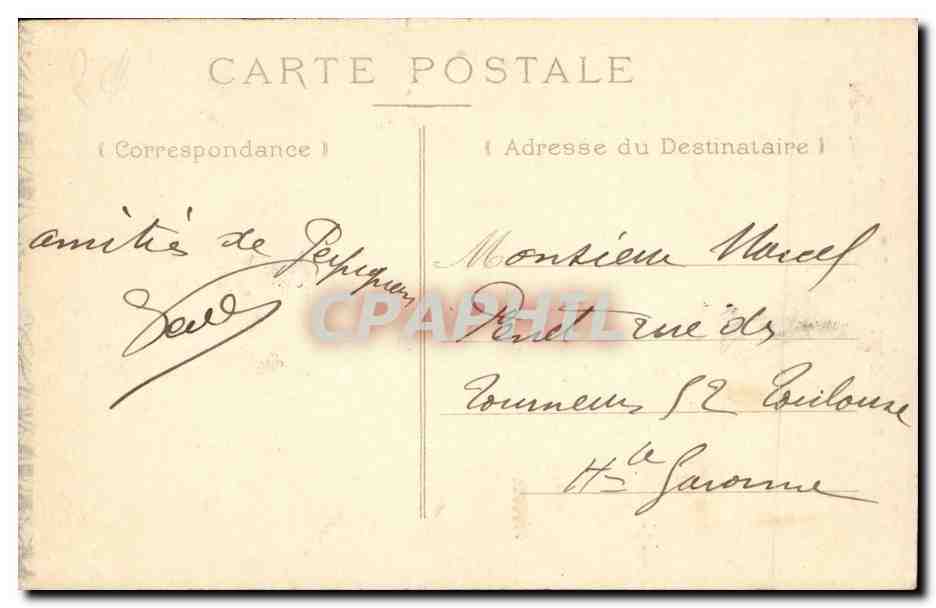 CARTE POSTALE
( Correspondance )
( Adresse du Destinataire )
amitiés de Perpignan
Monsieur Marcel
rue des
Tourneurs 52 Toulouse
Hte Garonne
CPAPHIL